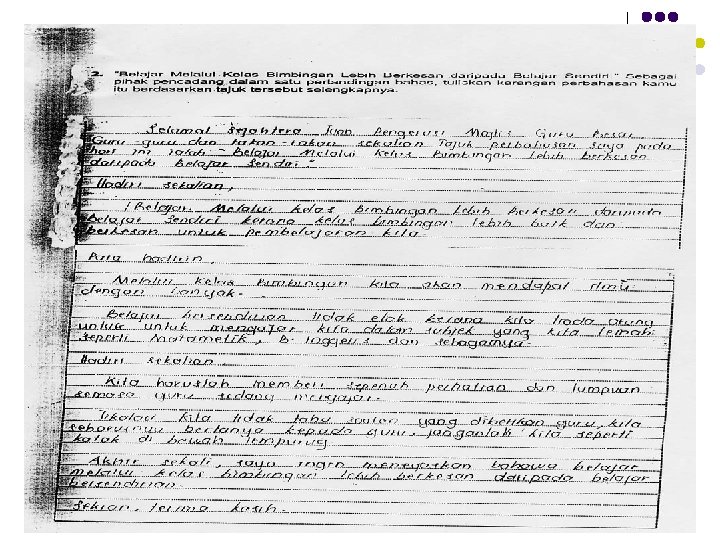 2. "Belajar Melalui Kelas Bimbingan Lebih Berkesan daripada Belajar Sendiri." Sebagai
pihak pencadang dalam satu perbandingan bahas, tuliskan karangan perbahasan kamu
itu berdasarkan tajuk tersebut selengkapnya.
Selamat Sejahtera Tuan Pengerusi Majlis Guru Besar,
Guru-guru dan rakan-rakan sekalian Tajuk perbahasan saya pada
hari ini ialah "Belajar Melalui Kelas Bimbingan lebih berkesan
daripada Belajar Sendiri"
Hadiri sekalian,
Belajar Melalui Kelas Bimbingan lebih Berkesan daripada
belajar sendiri kerana kelas bimbingan lebih baik dan
berkesan untuk pembelajaran kita.
Para hadirin,
Melalui kelas bimbingan kita akan mendapat ilmu
dengan banyak.
Belajar bersendirian tidak elok kerana kita tiada orang
untuk untuk mengajar kita dalam subjek yang kita lemah
seperti Matametik, B. Inggeris dan sebagainya.
Hadiri sekalian
Kita haruslah memberi sepenuh perhatian dan tumpuan
semasa guru sedang mengajar.
Jikalau kita tidak tahu soalan yang diberikan guru, kita
seharusnya bertanya kepada guru, janganlah kita seperti
katak di bawah tempurug
Akhir sekali, saya ingin menegaskan bahawa belajar
melalui kelas bimbingan lebih berkesan daripada belajar
bersendirian.
Sekian, terima kasih.